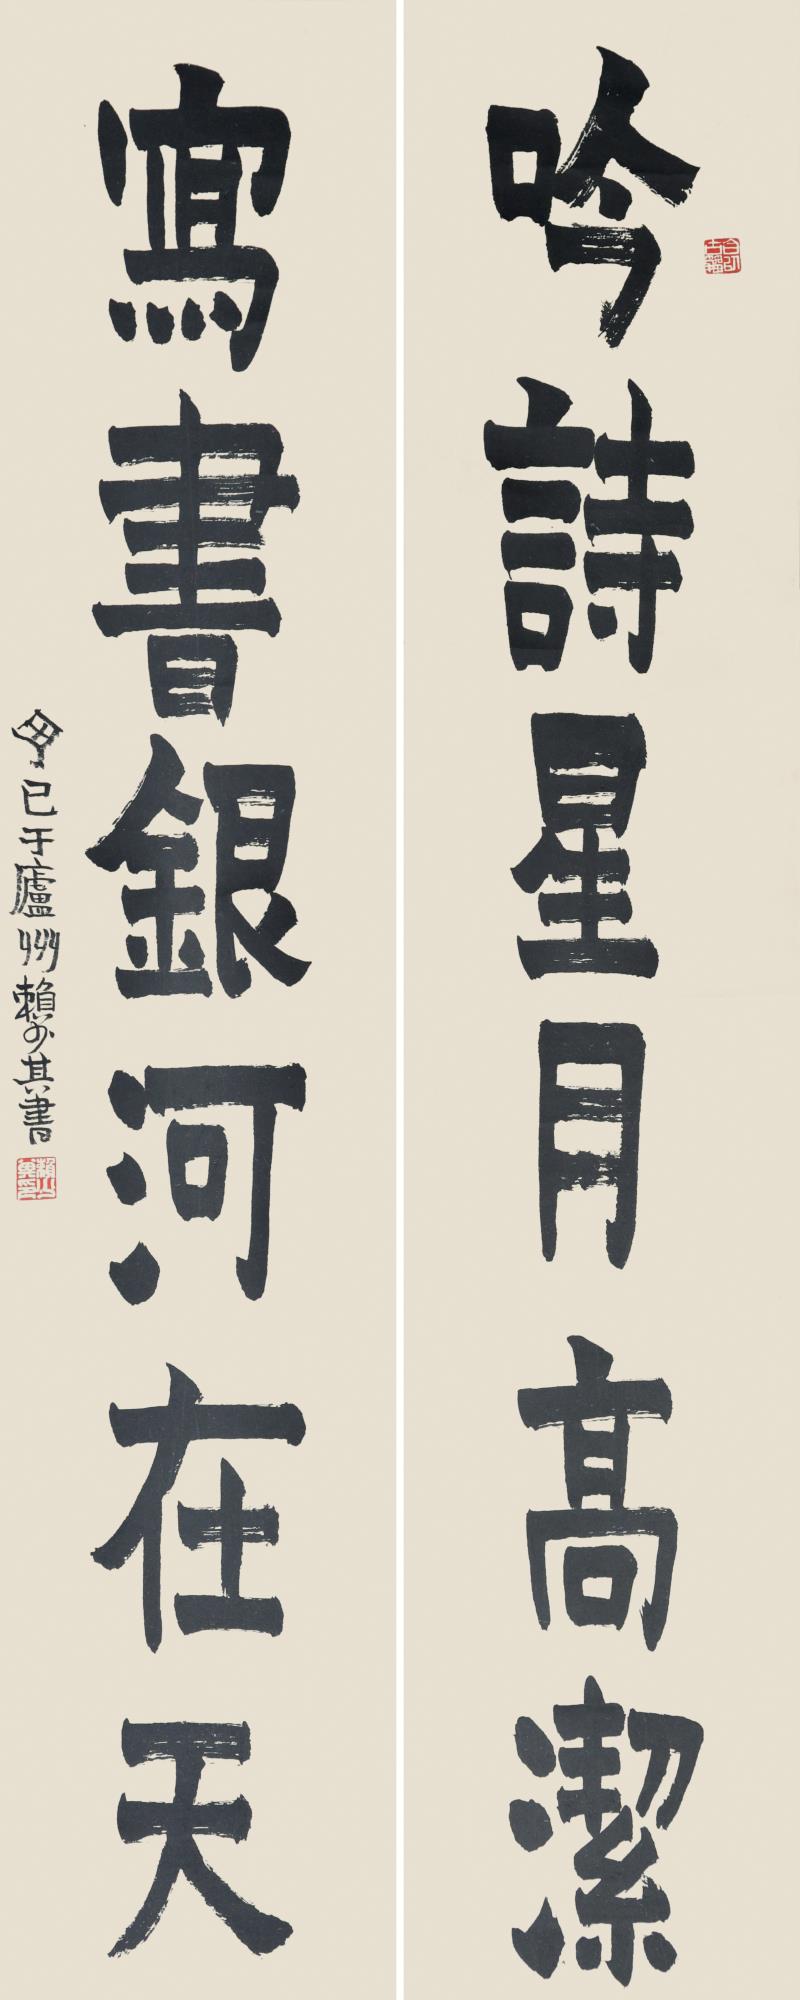 吟詩星月高潔
寫書銀河在天
己于廬州賴少其書
賴少其印